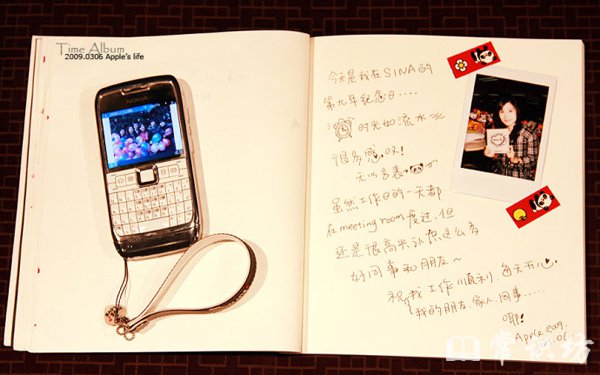 Time Album
2009.0306 Apple's life
NOKIA
今天是我在SINA的
第九年纪念日....
时光如流水~
很多感叹!
无以言表
虽然工作日的一天都
在meeting room度过,但
还是很高兴认识这么多
好同事和朋友~
祝我工作顺利,每天开心
我的朋友,家人,同事.....
耶!
Apple 2009.
03.06